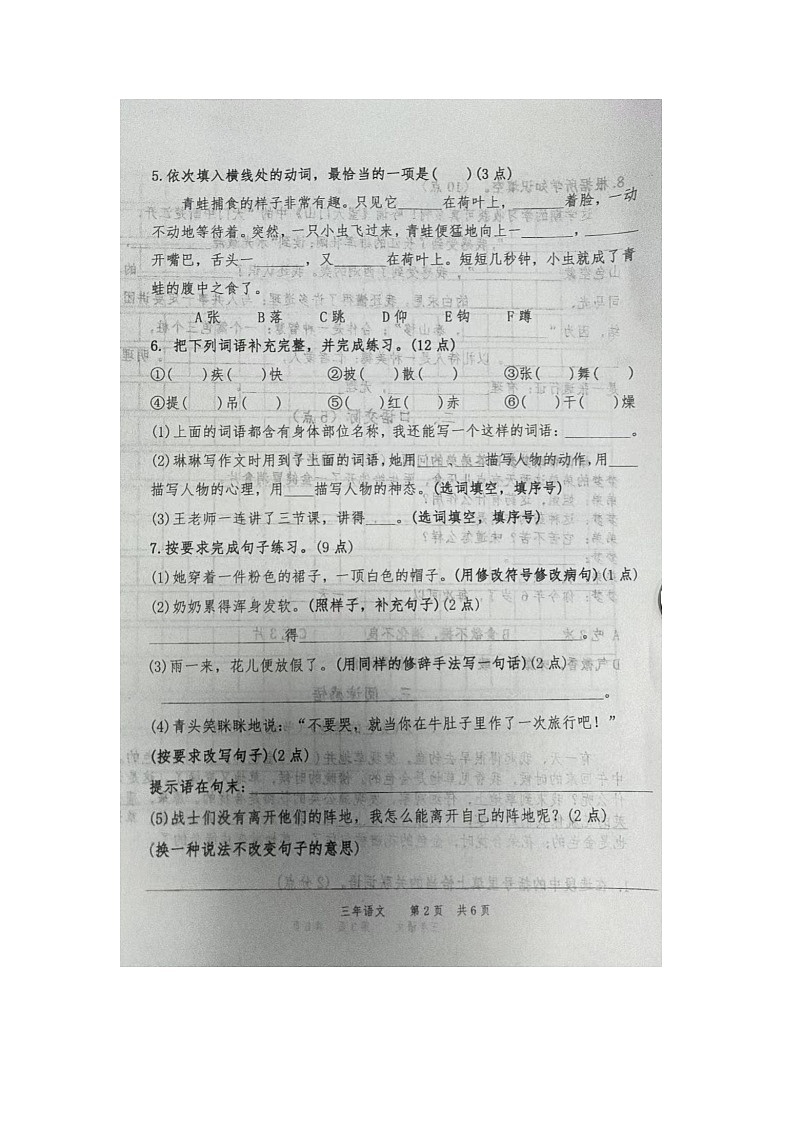 5.依次填入横线处的动词，最恰当的一项是(　　)(3 点)
青蛙捕食的样子非常有趣。只见它______在荷叶上，________着脸，一动
不动地等待着。突然，一只小虫飞过来，青蛙便猛地向上一_______，_______
开嘴巴，舌头一_______，又_______在荷叶上。短短几秒钟，小虫就成了青
蛙的腹中之食了。
A 张　　B 落　　C 跳　　D 仰　　E 钩　　F 蹲
6. 把下列词语补充完整，并完成练习。(12 点)
①(　　)疾(　　)快　　②(　　)披(　　)散(　　)　　③(　　)张(　　)舞(　　)
④提(　　)吊(　　)　　⑤(　　)红(　　)赤　　⑥(　　)干(　　)燥
(1)上面的词语都含有身体部位名称,我还能写一个这样的词语：_________。
(2)琳琳写作文时用到了上面的词语,她用_________描写人物的动作,用____
描写人物的心理，用____描写人物的神态。(选词填空，填序号)
(3)王老师一连讲了三节课，讲得____。(选词填空，填序号)
7.按要求完成句子练习。(9 点)
(1)她穿着一件粉色的裙子，一顶白色的帽子。(用修改符号修改病句)(1 点)
(2)奶奶累得浑身发软。(照样子，补充句子)(2 点)
__________________得______________________________________。
(3)雨一来，花儿便放假了。(用同样的修辞手法写一句话)(2 点)
____________________________________________________________。
(4)青头笑眯眯地说：“不要哭，就当你在牛肚子里作了一次旅行吧！”
(按要求改写句子)(2 点)
提示语在句末：______________________________________________________
(5)战士们没有离开他们的阵地，我怎么能离开自己的阵地呢？(2 点)
(换一种说法不改变句子的意思)
______________________________________________________________________
三年语文　第 2 页　共 6 页